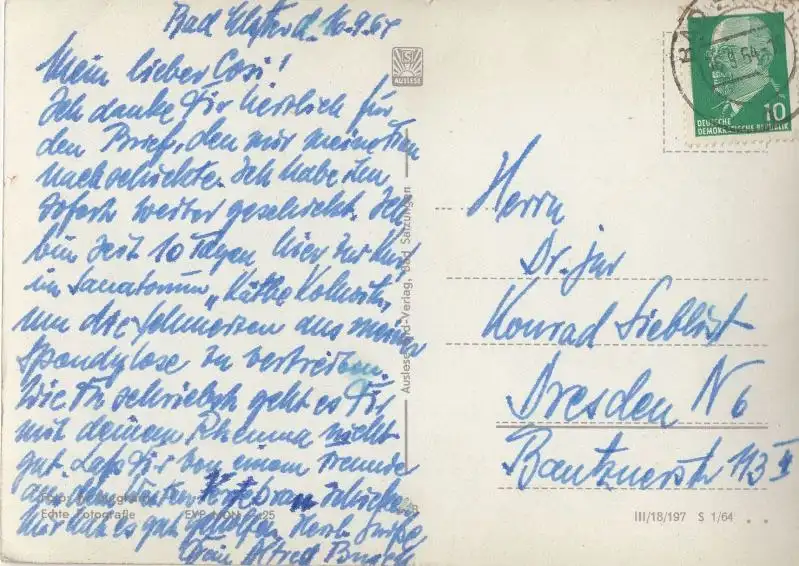 Bad Elster d. 16.9.64
Mein lieber Cosi!
Ich danke Dir herzlich für
den Brief, den mir meine Frau
nachschickte. Ich habe ihn
sofort weiter geschickt. Ich
bin seit 10 Tagen hier zur Kur
im Sanatorium „Käthe Kollwitz",
um die Schmerzen aus meiner
Spondylose zu vertreiben.
Wie Du schriebst geht es Dir
mit deinem Rheuma nicht
gut. Lass Dir von einem Freunde
aus dem schicken,
mir hat es gut geholfen. Herzl. Grüße
Dein Alfred
AUSLESE
Auslese-Bild-Verlag, Bad Salzungen
Foto:
Echte Fotografie
EVP MDN -,25
DEUTSCHE
DEMOKRATISCHE REPUBLIK
10
Herrn
Dr. jur
Konrad Sieblist
Dresden N 6
Bautznerstr 113 II
III/18/197 S 1/64